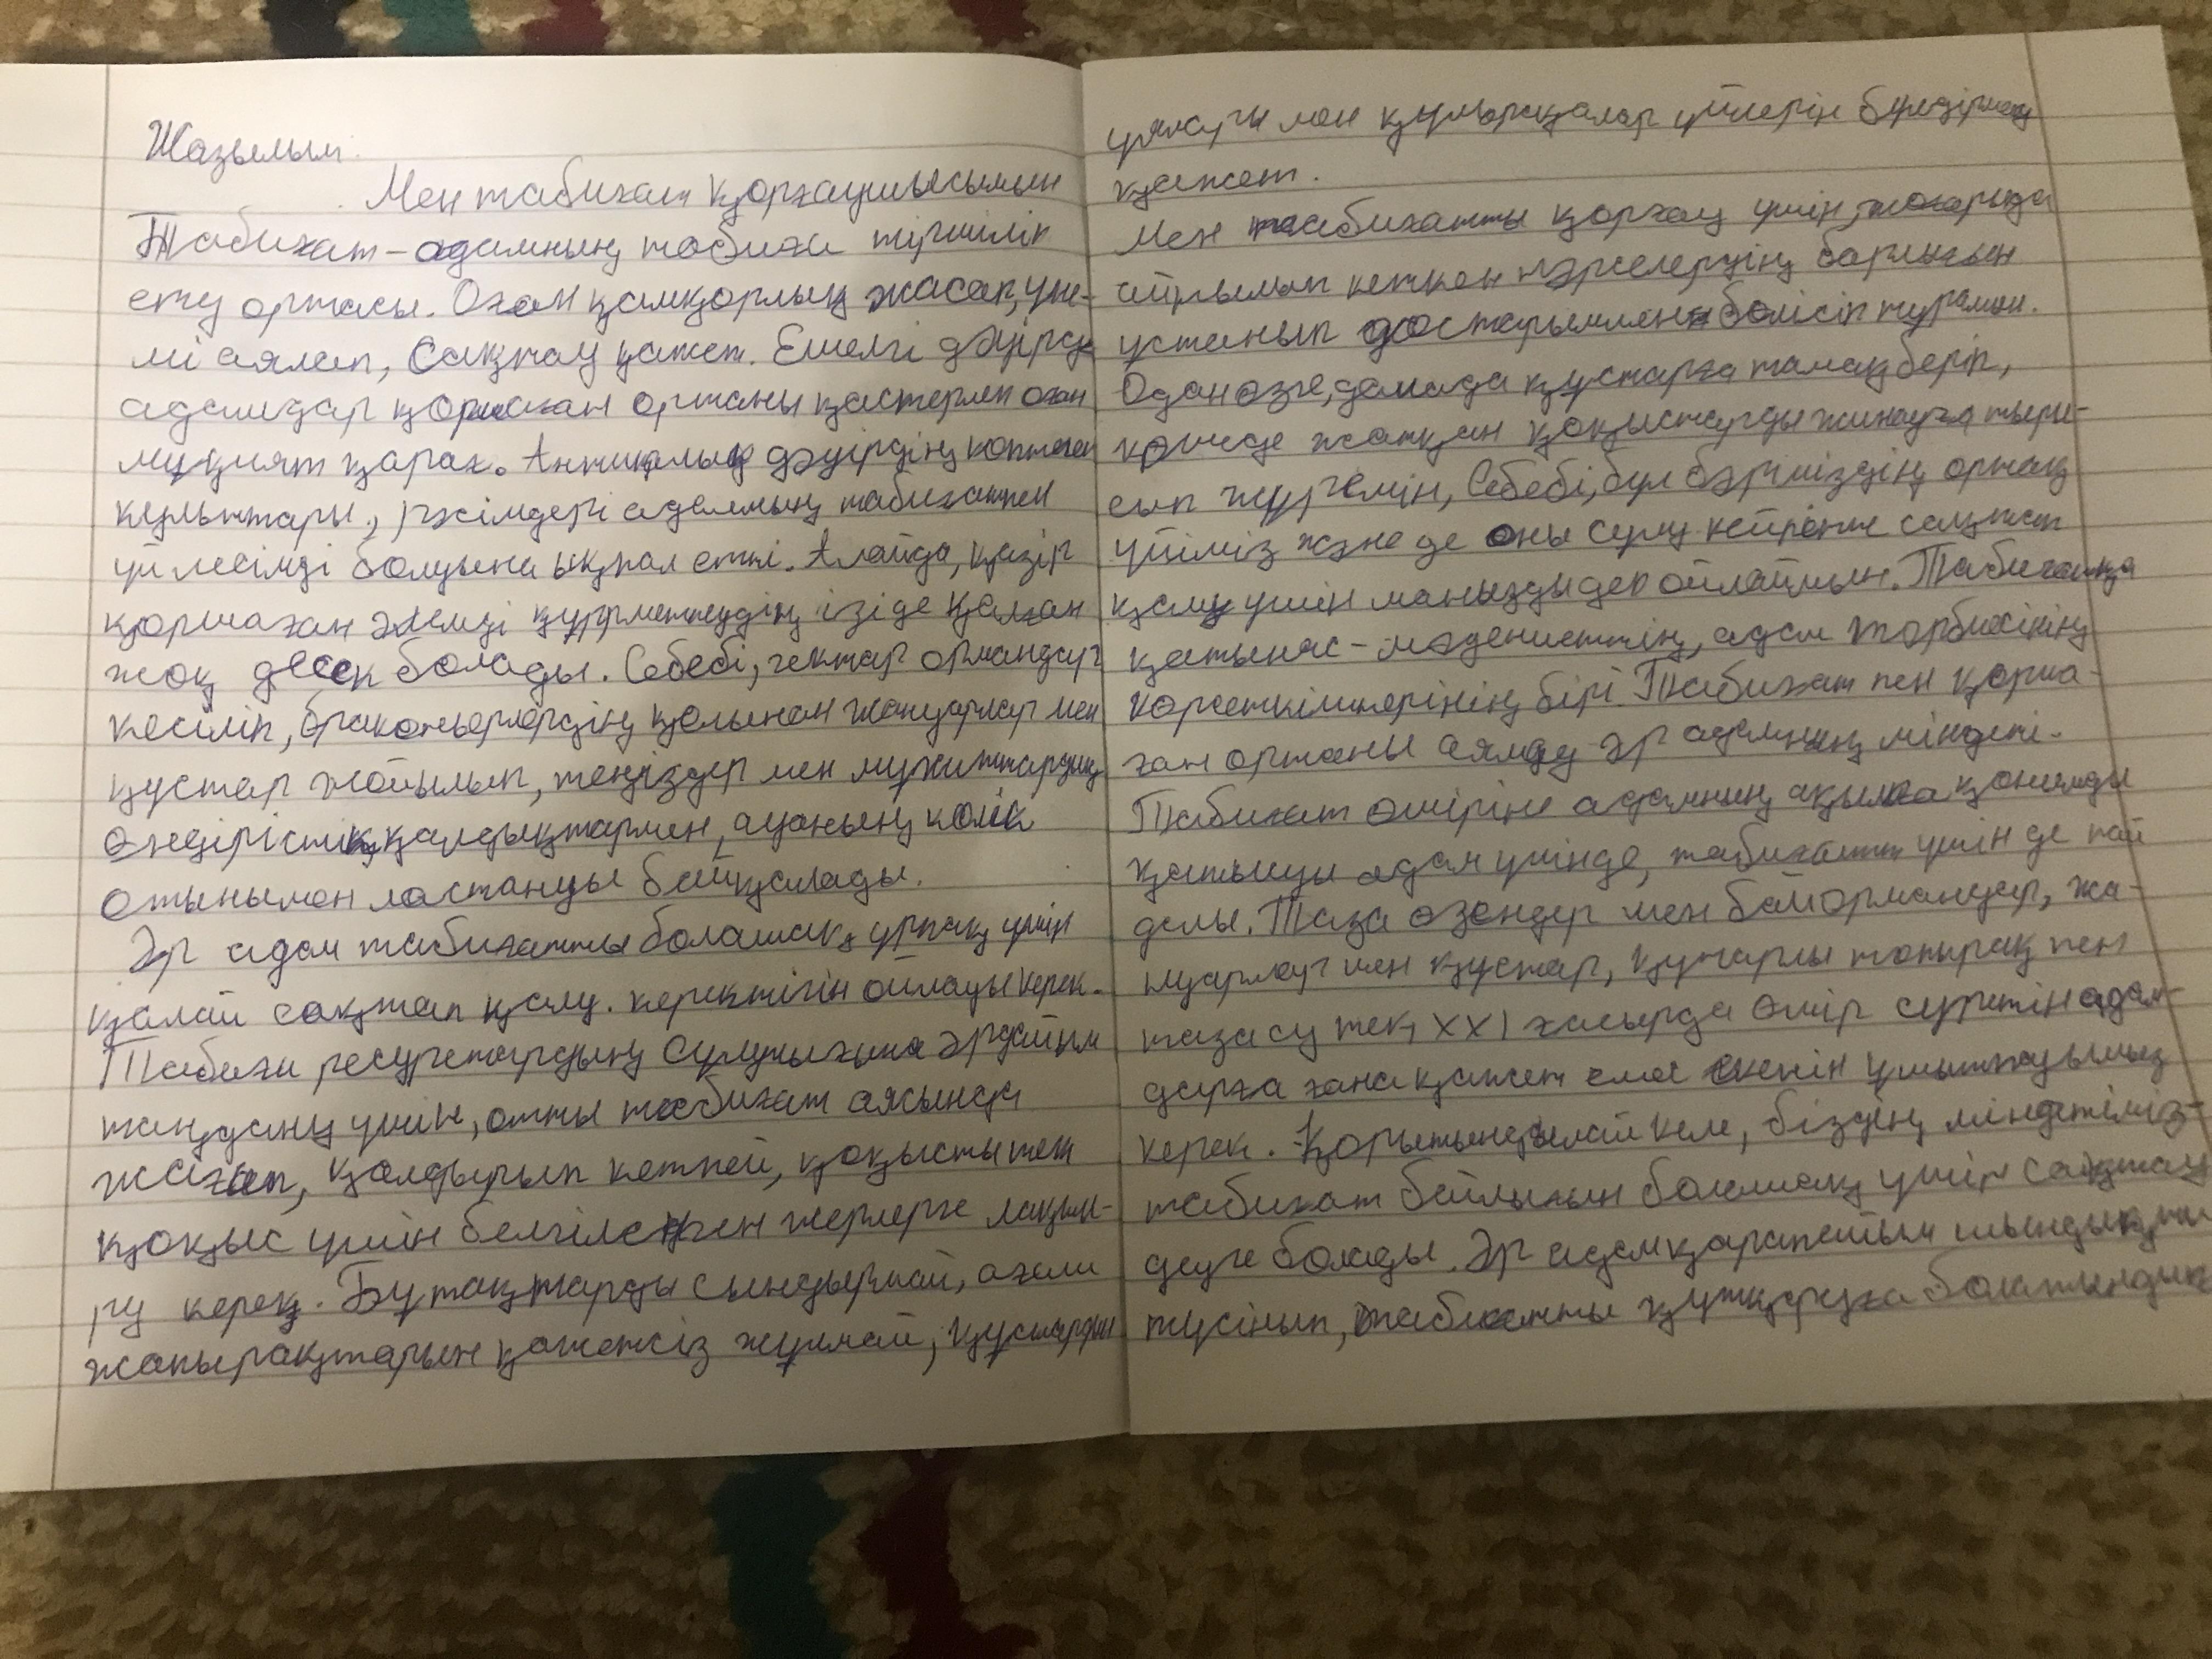 Жазылым.
Мен табиғат қорғаушысымын
Табиғат – адамның табиғи тіршілік
ету ортасы. Оған қамқорлық жасап, үне-
мі аялап, сақтау қажет. Ежелгі дәуірде
адамдар қоршаған ортаны қастерлеп оған
мұқият қараған. Антикалық дәуірдің көптеген
культтары, рәсімдері адамның табиғатпен
үйлесімді болуына ықпал етті. Алайда, қазір
қоршаған әлемді құрметтеудің ізі де қалған
жоқ десек болады. Себебі, гектар ормандар
кесіліп, браконьерлердің қолынан жануарлар мен
құстар жойылып, теңіздер мен мұхиттардың
өндірістік қалдықтармен, ауаның көлік
отынымен ластануы байқалады.
Әр адам табиғатты болашақ ұрпақ үшін
қалай сақтап қалу керектігін ойлауы керек.
Табиғи ресурстардың сұлулығына әрдайым
таңдану үшін, отты табиғат аясында
жағып, қалдырып кетпей, қоқысты тек
қоқыс үшін белгіленген жерлерге лақты-
ру керек. Бұтақтарды сындырмай, ағаш
жапырақтарын қажетсіз жұлмай, құстардың
ұялары мен құмырсқалар үйлерін бүлдірмеу
қажет.
Мен табиғатты қорғау үшін, жоғарыда
айтылып кеткен нәрселердің барлығын
ұстанып достарыммен бөлісіп тұрамын.
Одан өзге, далада құстарға тамақ беріп,
көшеде жатқан қоқыстарды жинауға тыры-
сып жүремін, Себебі, бұл бәріміздің ортақ
үйіміз және де оны сұлу кейпінде сақтап
қалу үшін маңызды деп ойлаймын. Табиғатқа
қатынас – мәдениеттің, адам тәрбиесінің
көрсеткіштерінің бірі. Табиғат пен қорша-
ған ортаны аялау әр адамның міндеті.
Табиғат өміріне адамның ақылға қонымды
қатысуы адам үшін де, табиғат үшін де пай
далы. Таза өзендер мен бай ормандар, жа-
нуарлар мен құстар, құнарлы топырақ пен
таза су тек XXI ғасырда өмір сүретін адам-
дарға ғана қажет емес екенін ұмытпауымыз
керек. Қорытындылай келе, біздің міндетіміз-
табиғат байлығын болашақ үшін сақтау
деуге болады. Әр адам қарапайым шындықты
түсініп, табиғатты құтқаруға болатындық